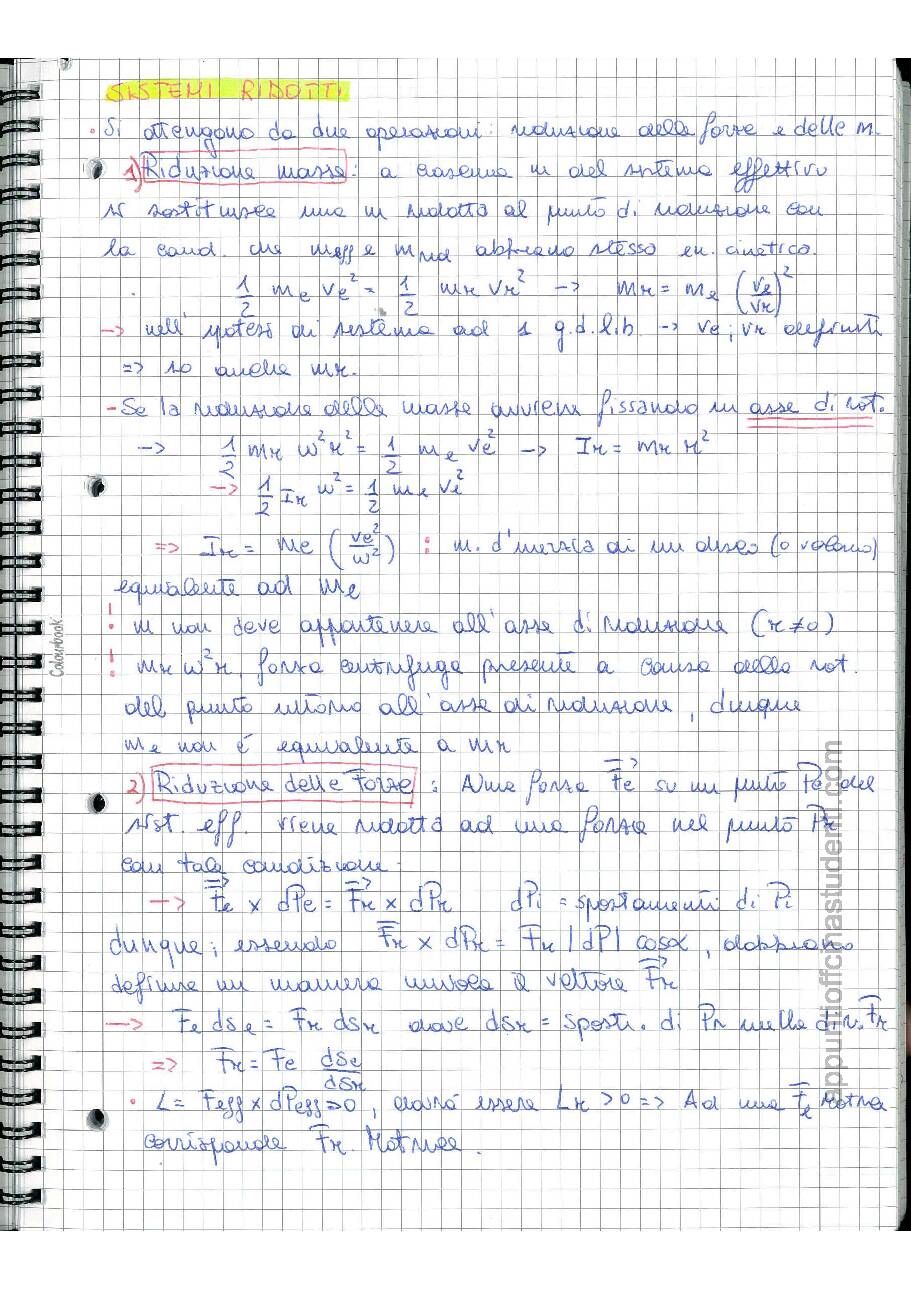 SISTEMI RIDOTTI
• Si ottengono da due operazioni: riduzione delle forze e delle m.
1) Riduzione masse: a ciascuna m del sistema effettivo
si sostituisce una m ridotta al punto di riduzione con
la cond. che meff e mrid abbiano stesso en. cinetica.
1/2 me ve² = 1/2 mr vr² -> mr = me (ve/vr)²
-> nell'ipotesi di sistema ad 1 g.d.lib. -> ve, vr definiti
=> so anche mr.
- Se la riduzione delle masse avviene fissando un asse di rot.
-> 1/2 mr ω²r² = 1/2 me ve² -> Ir = mr r²
-> 1/2 Ir ω² = 1/2 me ve²
=> Ir = me (ve²/ω²) : m. d'inerzia di un disco (o volano)
equivalente ad me
! m non deve appartenere all'asse di riduzione (r≠0)
! mr ω²r, forza centrifuga presente a causa della rot.
del punto intorno all'asse di riduzione, dunque
me non é equivalente a mr
2) Riduzione delle Forze : Una forza Fe su un punto Pe del
sist. eff. viene ridotta ad una forza nel punto Pr
con tale condizione.
-> Fe × dPe = Fr × dPr dPi = spostamenti di Pi
dunque, essendo Fr × dPr = Fr |dP| cosα, dobbiamo
definire in maniera univoca il vettore Fr
-> Fe dse = Fr dsr dove dsr = spost. di Pr nella dir. Fr
=> Fr = Fe dse/dsr
• L = Feff × dPeff > 0, dovrá essere Lr > 0 => Ad una Fe Motrice
corrisponde Fr Motrice.
Colourbook
appuntiofficinastudent.com